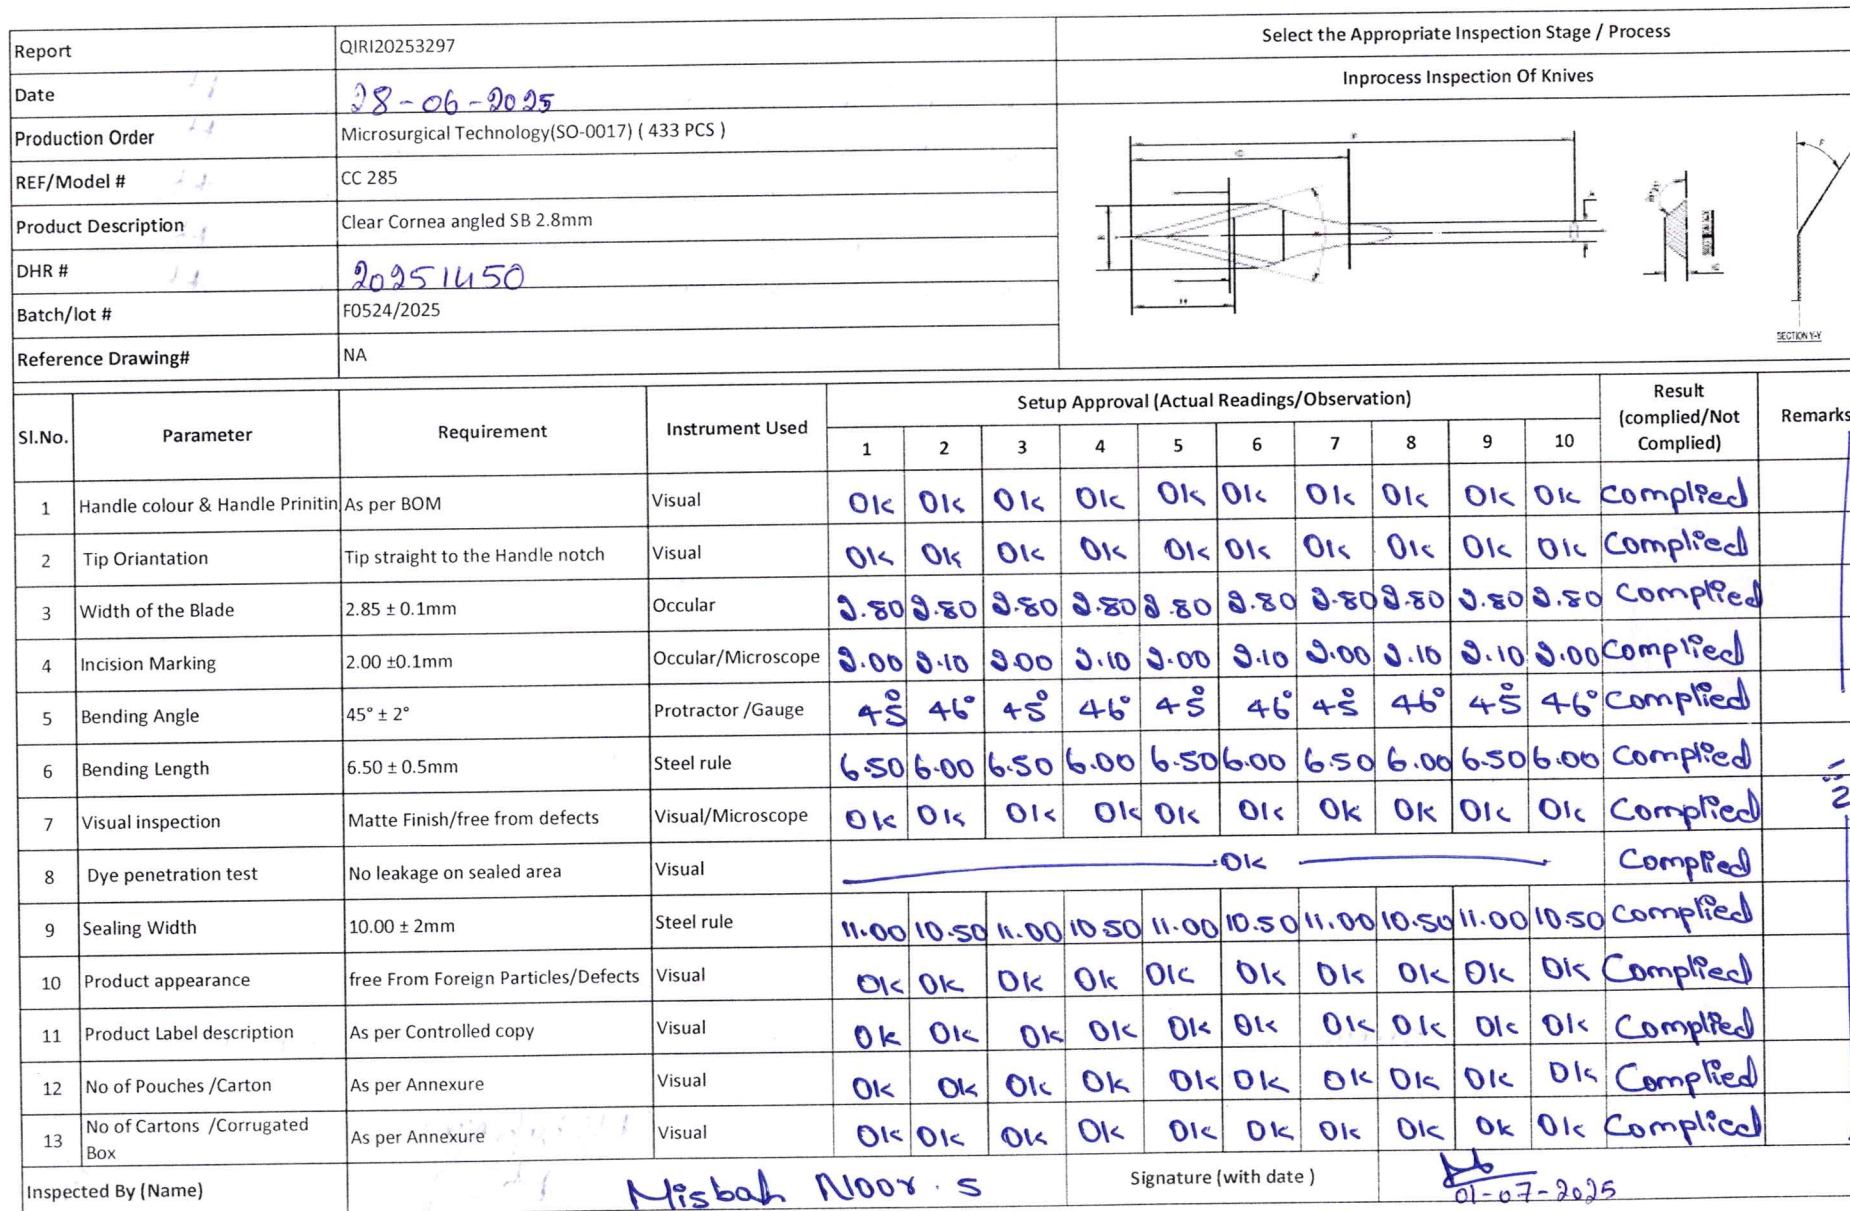 Report QIRI20253297
Select the Appropriate Inspection Stage / Process
Date 28-06-2025
Inprocess Inspection Of Knives
Production Order Microsurgical Technology(SO-0017) ( 433 PCS )
REF/Model # CC 285
Product Description Clear Cornea angled SB 2.8mm
DHR # 20251450
Batch/lot # F0524/2025
Reference Drawing# NA
SECTION Y-Y
Sl.No. Parameter Requirement Instrument Used Setup Approval (Actual Readings/Observation) Result (complied/Not Complied) Remarks
1 2 3 4 5 6 7 8 9 10
1 Handle colour & Handle Prinitin As per BOM Visual Ok Ok Ok Ok Ok Ok Ok Ok Ok Ok Complied
2 Tip Oriantation Tip straight to the Handle notch Visual Ok Ok Ok Ok Ok Ok Ok Ok Ok Ok Complied
3 Width of the Blade 2.85 ± 0.1mm Occular 2.80 2.80 2.80 2.80 2.80 2.80 2.80 2.80 2.80 2.80 Complied
4 Incision Marking 2.00 ±0.1mm Occular/Microscope 2.00 2.10 2.00 2.10 2.00 2.10 2.00 2.10 2.10 2.00 Complied
5 Bending Angle 45° ± 2° Protractor /Gauge 45° 46° 45° 46° 45° 46° 45° 46° 45° 46° Complied
6 Bending Length 6.50 ± 0.5mm Steel rule 6.50 6.00 6.50 6.00 6.50 6.00 6.50 6.00 6.50 6.00 Complied
7 Visual inspection Matte Finish/free from defects Visual/Microscope Ok Ok Ok Ok Ok Ok Ok Ok Ok Ok Complied
8 Dye penetration test No leakage on sealed area Visual Ok Complied
9 Sealing Width 10.00 ± 2mm Steel rule 11.00 10.50 11.00 10.50 11.00 10.50 11.00 10.50 11.00 10.50 Complied
10 Product appearance free From Foreign Particles/Defects Visual Ok Ok Ok Ok Ok Ok Ok Ok Ok Ok Complied
11 Product Label description As per Controlled copy Visual Ok Ok Ok Ok Ok Ok Ok Ok Ok Ok Complied
12 No of Pouches /Carton As per Annexure Visual Ok Ok Ok Ok Ok Ok Ok Ok Ok Ok Complied
13 No of Cartons /Corrugated Box As per Annexure Visual Ok Ok Ok Ok Ok Ok Ok Ok Ok Ok Complied
Inspected By (Name) Misbah Noor.S Signature (with date ) 01-07-2025